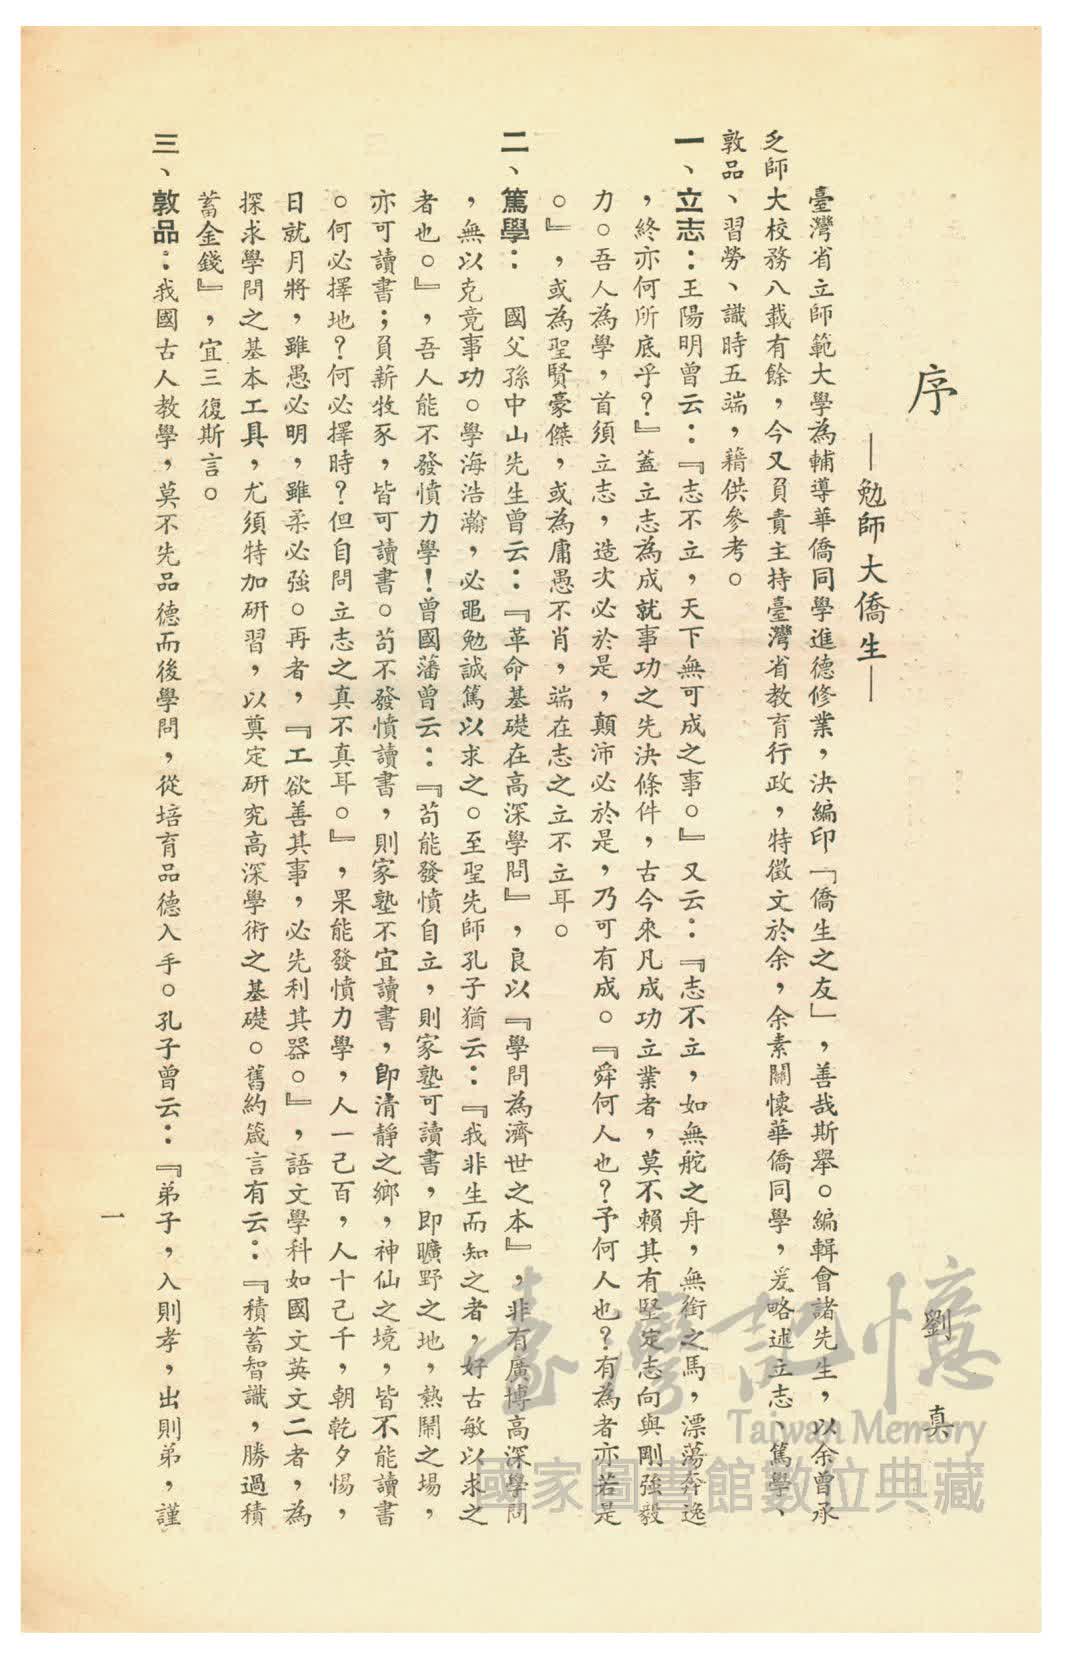 序
—勉師大僑生—
劉　真
臺灣省立師範大學為輔導華僑同學進德修業，決編印「僑生之友」，善哉斯舉。編輯會諸先生，以余曾承
乏師大校務八載有餘，今又負責主持臺灣省教育行政，特徵文於余，余素關懷華僑同學，爰略述立志、篤學、
敦品、習勞、識時五端，藉供參考。
一、立志：王陽明曾云：『志不立，天下無可成之事。』又云：『志不立，如無舵之舟，無銜之馬，漂蕩奔逸
，終亦何所底乎？』蓋立志為成就事功之先決條件，古今來凡成功立業者，莫不賴其有堅定志向與剛強毅
力。吾人為學，首須立志，造次必於是，顛沛必於是，乃可有成。『舜何人也？予何人也？有為者亦若是
。』，或為聖賢豪傑，或為庸愚不肖，端在志之立不立耳。
二、篤學：　國父孫中山先生曾云：『革命基礎在高深學問』，良以『學問為濟世之本』，非有廣博高深學問
，無以克竟事功。學海浩瀚，必黽勉誠篤以求之。至聖先師孔子猶云：『我非生而知之者，好古敏以求之
者也。』，吾人能不發憤力學！曾國藩曾云：『苟能發憤自立，則家塾可讀書，即曠野之地，熱鬧之場，
亦可讀書；負薪牧豕，皆可讀書。苟不發憤讀書，則家塾不宜讀書，即清靜之鄉，神仙之境，皆不能讀書
。何必擇地？何必擇時？但自問立志之真不真耳。』，果能發憤力學，人一己百，人十己千，朝乾夕惕，
日就月將，雖愚必明，雖柔必強。再者，『工欲善其事，必先利其器。』，語文學科如國文英文二者，為
探求學問之基本工具，尤須特加研習，以奠定研究高深學術之基礎。舊約箴言有云：『積蓄智識，勝過積
蓄金錢』，宜三復斯言。
三、敦品：我國古人教學，莫不先品德而後學問，從培育品德入手。孔子曾云：『弟子，入則孝，出則弟，謹
一
臺灣記憶
Taiwan Memory
國家圖書館數位典藏